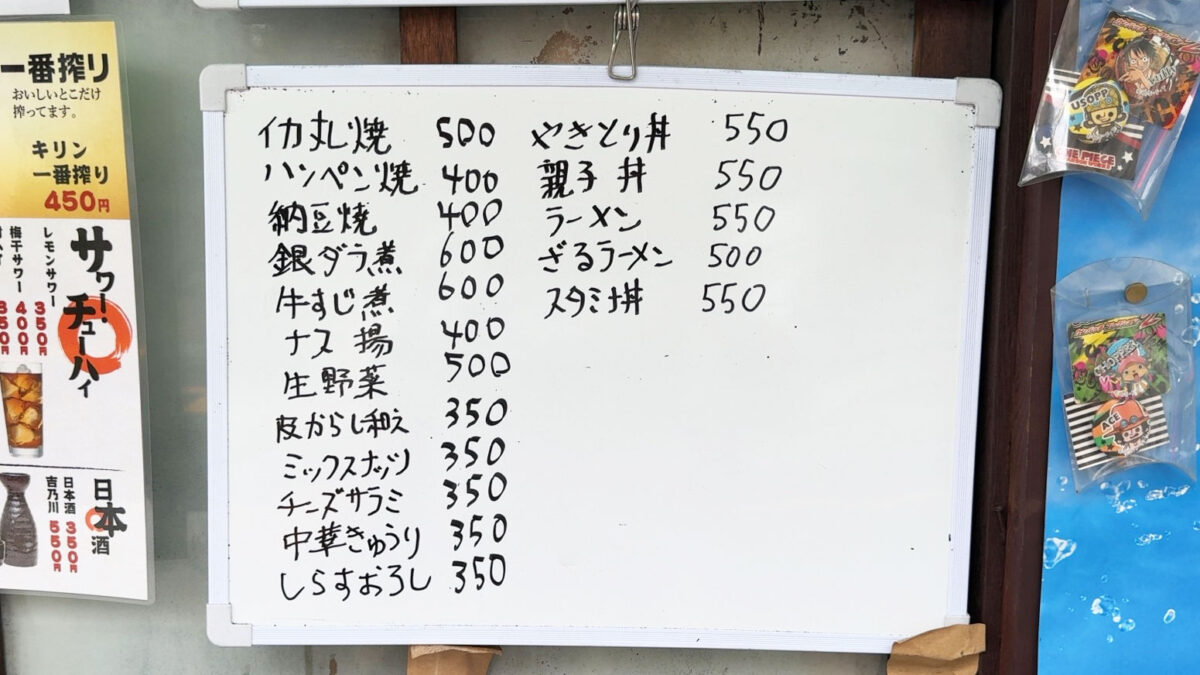 一番搾り
おいしいとこだけ
搾ってます。
キリン
一番搾り
450円
サワー・
チューハイ
レモンサワー 350円
梅干サワー 400円
350円
日本酒
日本酒 350円
吉乃川 550円
イカ丸し焼 500
ハンペン焼 400
納豆焼 400
銀ダラ煮 600
牛すじ煮 600
ナス揚 400
生野菜 500
皮からし和え 350
ミックスナッツ 350
チーズサラミ 350
中華きゅうり 350
しらすおろし 350
やきとり丼 550
親子丼 550
ラーメン 550
ざるラーメン 500
スタミナ丼 550
USOPP
ONE PIECE
CHOPPER
ACE